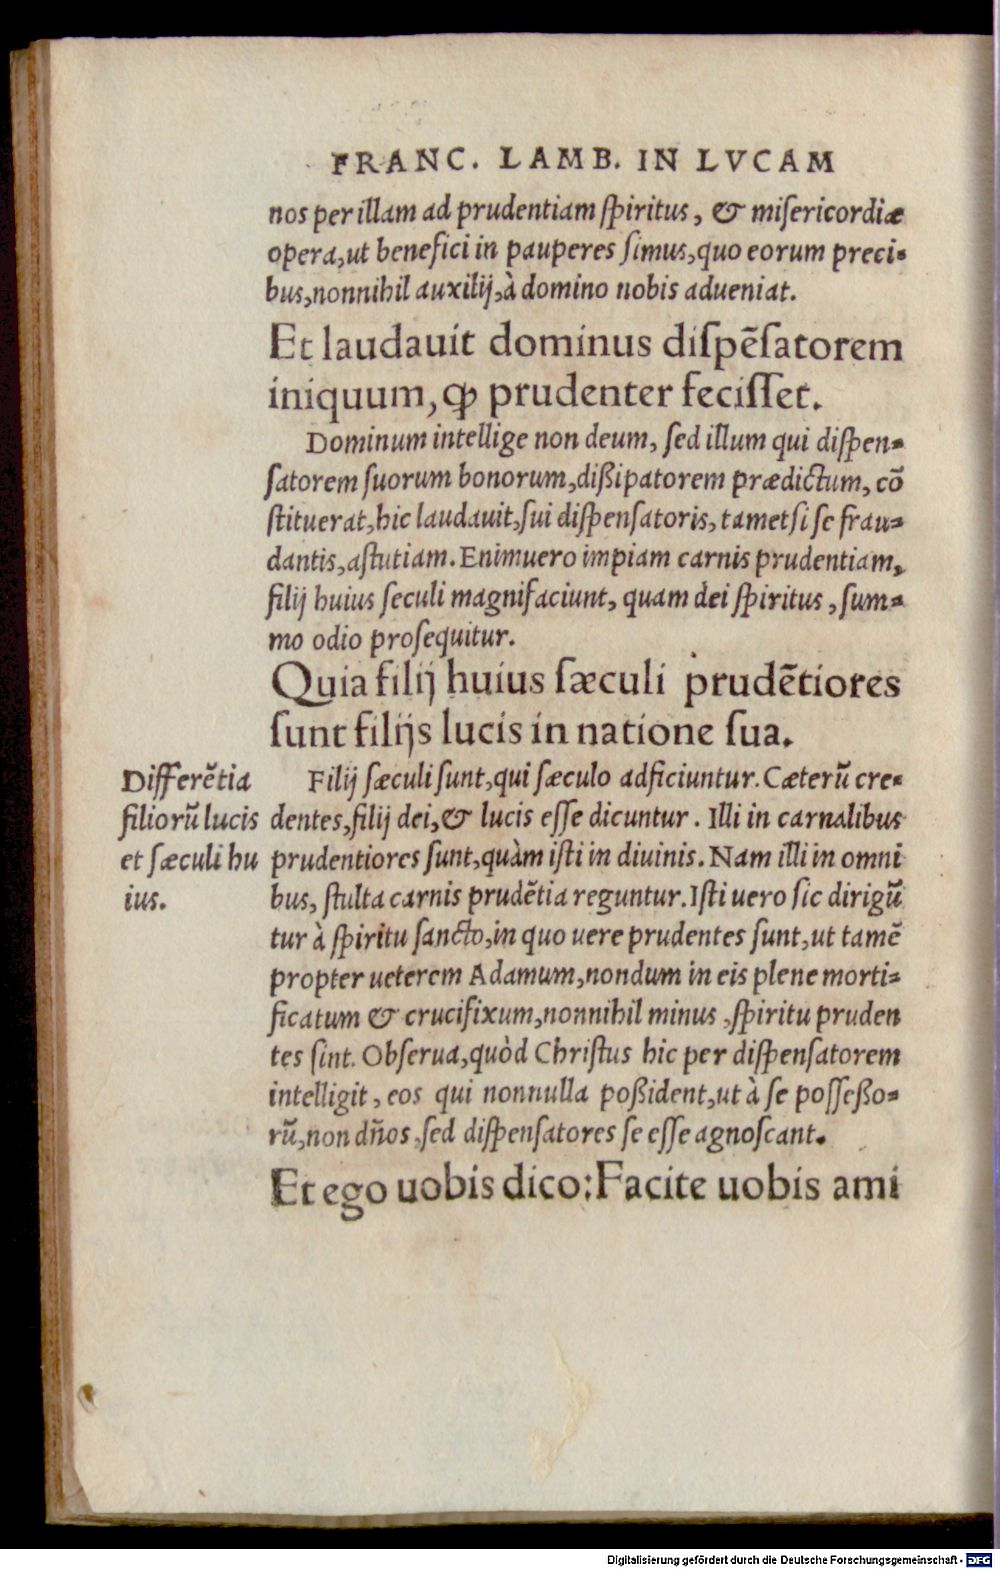 FRANC. LAMB. IN LVCAM
nos per illam ad prudentiam ſpiritus, & miſericordiæ
opera, ut benefici in pauperes ſimus, quo eorum preci-
bus, nonnihil auxilij, à domino nobis adueniat.
Et laudauit dominus diſpēſatorem
iniquum, ꝙ prudenter feciſſet.
Dominum intellige non deum, ſed illum qui diſpen-
ſatorem ſuorum bonorum, dißipatorem prædictum, cō
ſtituerat, hic laudauit, ſui diſpenſatoris, tametſi ſe frau-
dantis, aſtutiam. Enimuero impiam carnis prudentiam,
filij huius ſeculi magnifaciunt, quam dei ſpiritus, ſum-
mo odio proſequitur.
Quia filij huius ſæculi prudētiores
ſunt filijs lucis in natione ſua.
Differētia
filiorū lucis
et ſæculi hu
ius.
Filij ſæculi ſunt, qui ſæculo adficiuntur. Cæterū cre-
dentes, filij dei, & lucis eſſe dicuntur. Illi in carnalibus
prudentiores ſunt, quàm iſti in diuinis. Nam illi in omni
bus, ſtulta carnis prudētia reguntur. Iſti uero ſic dirigū
tur à ſpiritu ſancto, in quo uere prudentes ſunt, ut tamē
propter ueterem Adamum, nondum in eis plene morti-
ficatum & crucifixum, nonnihil minus, ſpiritu pruden
tes ſint. Obſerua, quòd Chriſtus hic per diſpenſatorem
intelligit, eos qui nonnulla poßident, ut à ſe poſſeßo-
rū, non dños, ſed diſpenſatores ſe eſſe agnoſcant.
Et ego uobis dico: Facite uobis ami
Digitalisierung gefördert durch die Deutsche Forschungsgemeinschaft - DFG